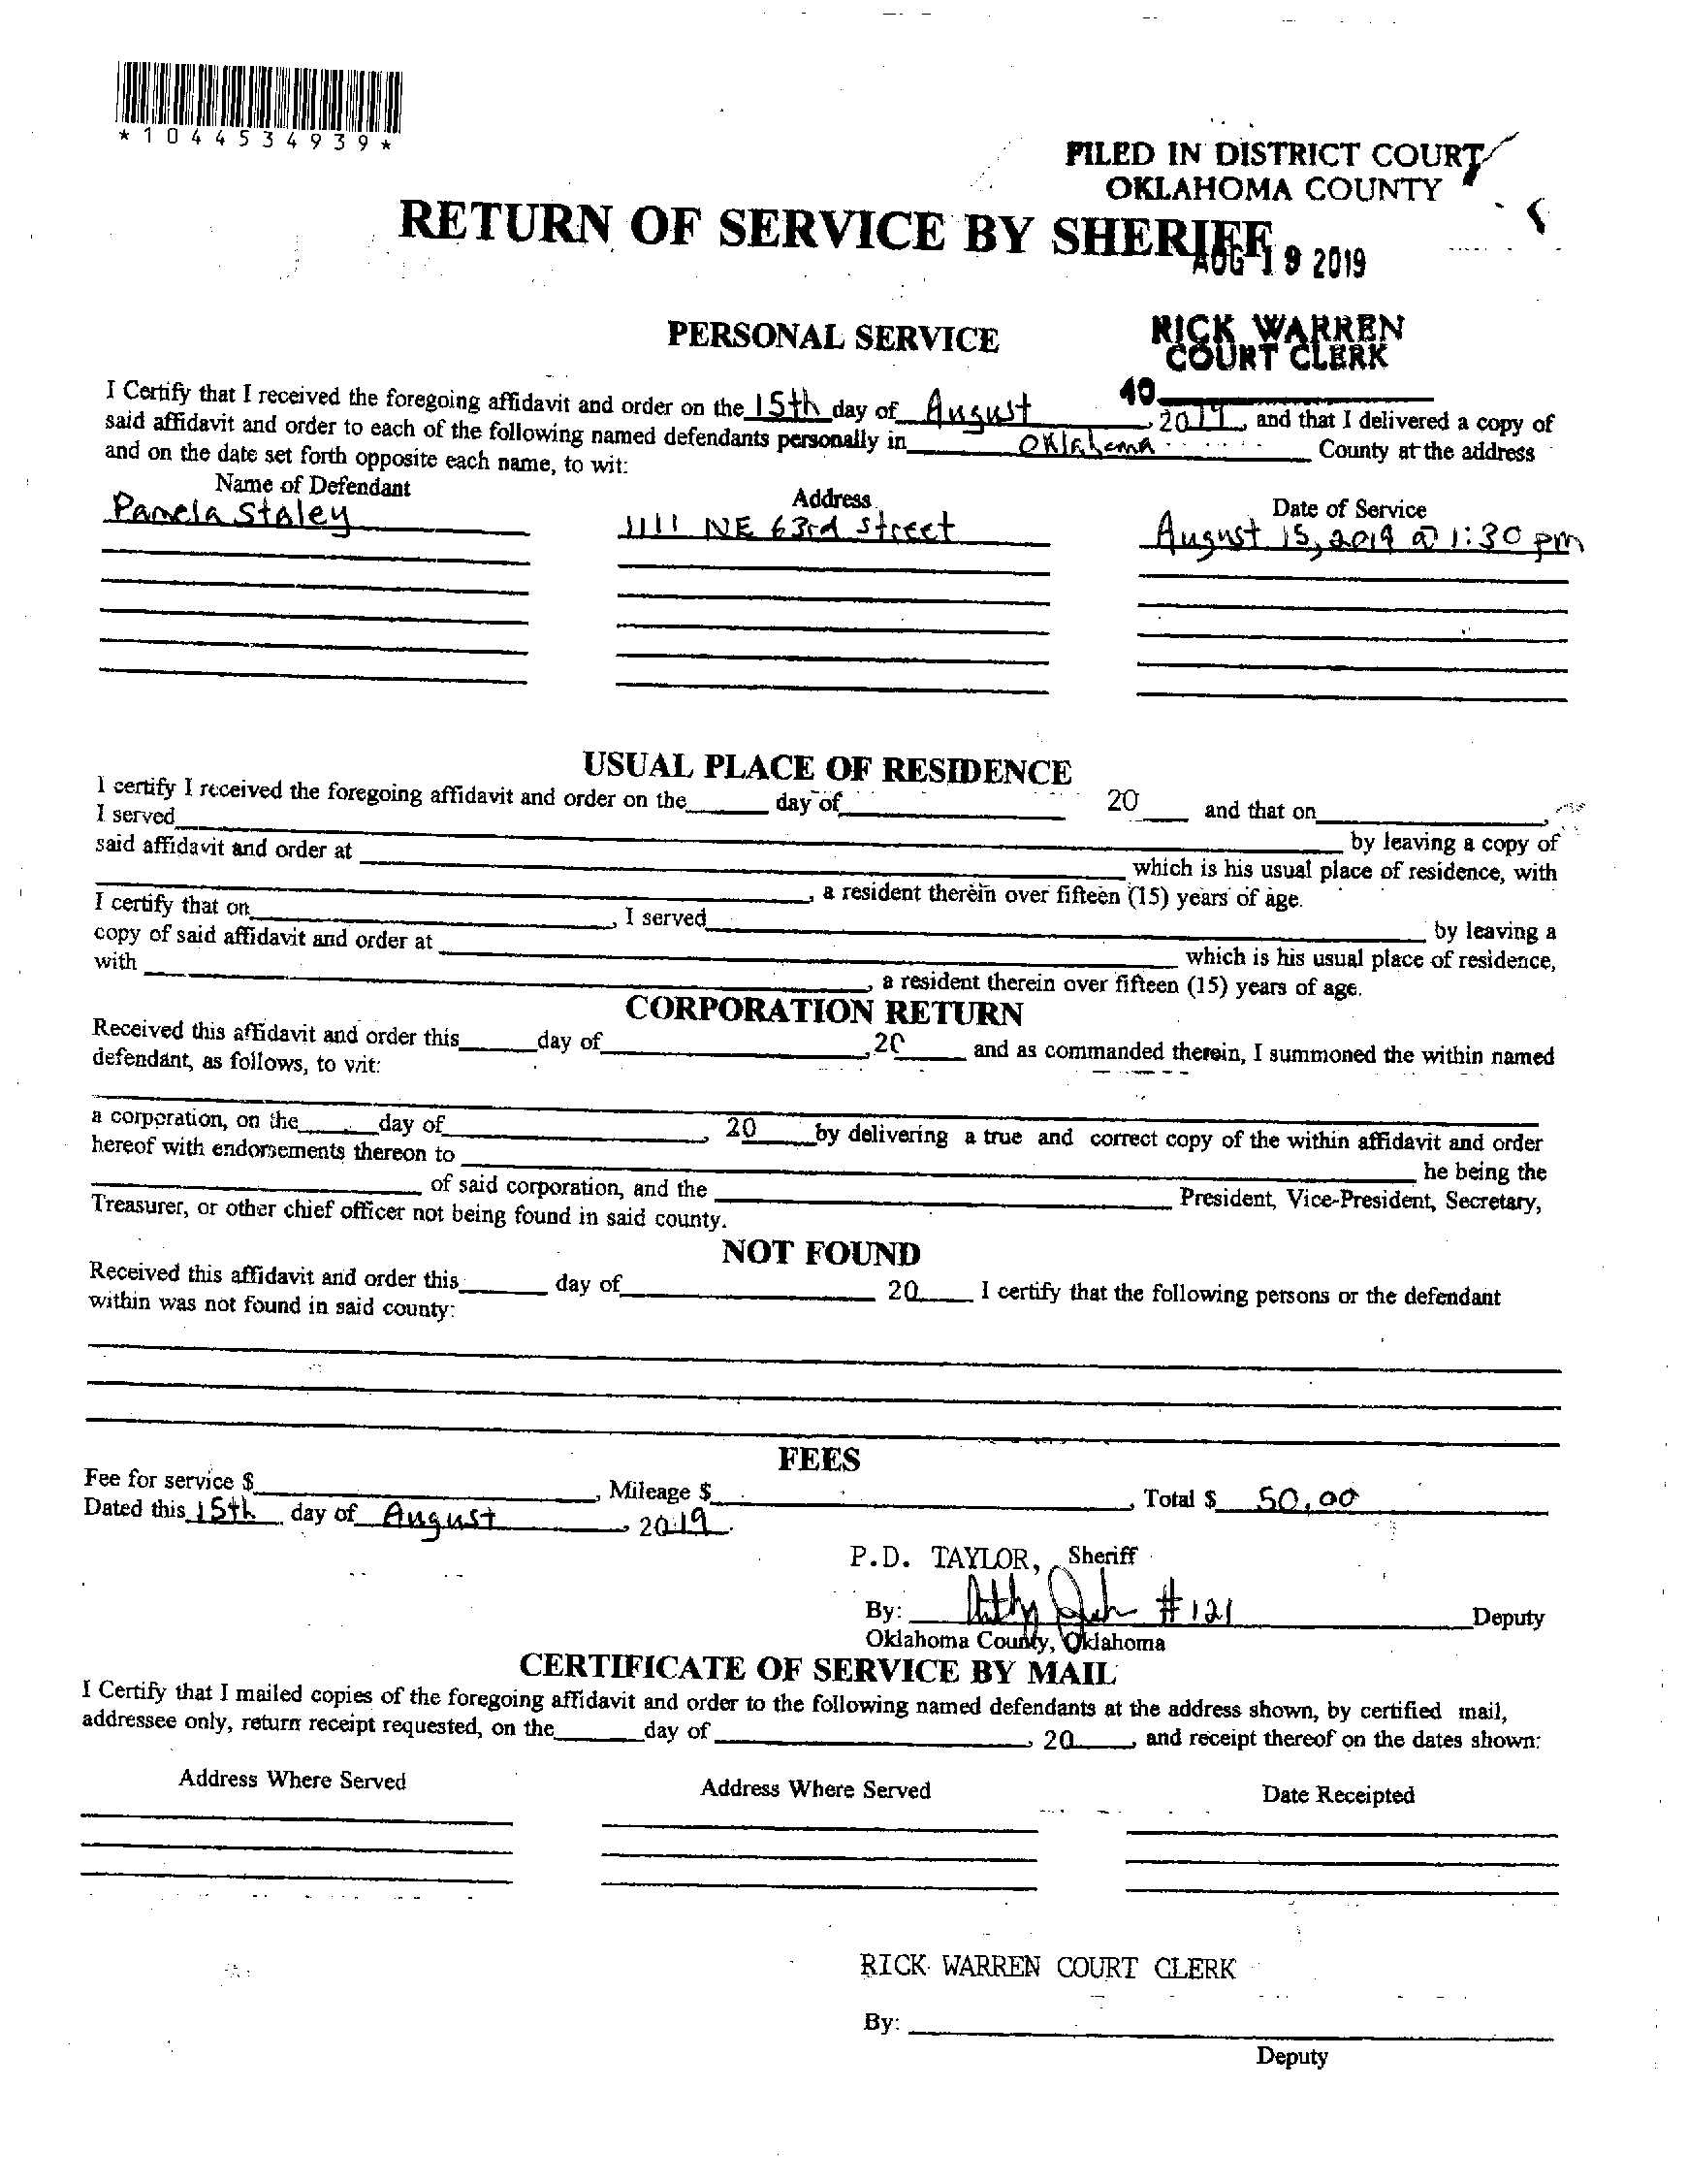 *1044534939*
FILED IN DISTRICT COURT
OKLAHOMA COUNTY
RETURN OF SERVICE BY SHERIFF
AUG 19 2019
PERSONAL SERVICE
RICK WARREN
COURT CLERK
40
I Certify that I received the foregoing affidavit and order on the 15th day of August, 2019, and that I delivered a copy of
said affidavit and order to each of the following named defendants personally in Oklahoma County at the address
and on the date set forth opposite each name, to wit:
Name of Defendant Address Date of Service
Pamela Staley 1111 NE 63rd Street August 15, 2019 @ 1:30 pm
USUAL PLACE OF RESIDENCE
I certify I received the foregoing affidavit and order on the day of 20 and that on ,
I served by leaving a copy of
said affidavit and order at which is his usual place of residence, with
, a resident therein over fifteen (15) years of age.
I certify that on , I served by leaving a
copy of said affidavit and order at which is his usual place of residence,
with , a resident therein over fifteen (15) years of age.
CORPORATION RETURN
Received this affidavit and order this day of , 20 and as commanded therein, I summoned the within named
defendant, as follows, to wit:
a corporation, on the day of , 20 by delivering a true and correct copy of the within affidavit and order
hereof with endorsements thereon to he being the
of said corporation, and the President, Vice-President, Secretary,
Treasurer, or other chief officer not being found in said county.
NOT FOUND
Received this affidavit and order this day of 20 I certify that the following persons or the defendant
within was not found in said county:
FEES
Fee for service $ , Mileage $ , Total $ 50.00
Dated this 15th day of August, 2019.
P.D. TAYLOR, Sheriff
By: #121 Deputy
Oklahoma County, Oklahoma
CERTIFICATE OF SERVICE BY MAIL
I Certify that I mailed copies of the foregoing affidavit and order to the following named defendants at the address shown, by certified mail,
addressee only, return receipt requested, on the day of , 20 , and receipt thereof on the dates shown:
Address Where Served Address Where Served Date Receipted
RICK WARREN COURT CLERK
By:
Deputy